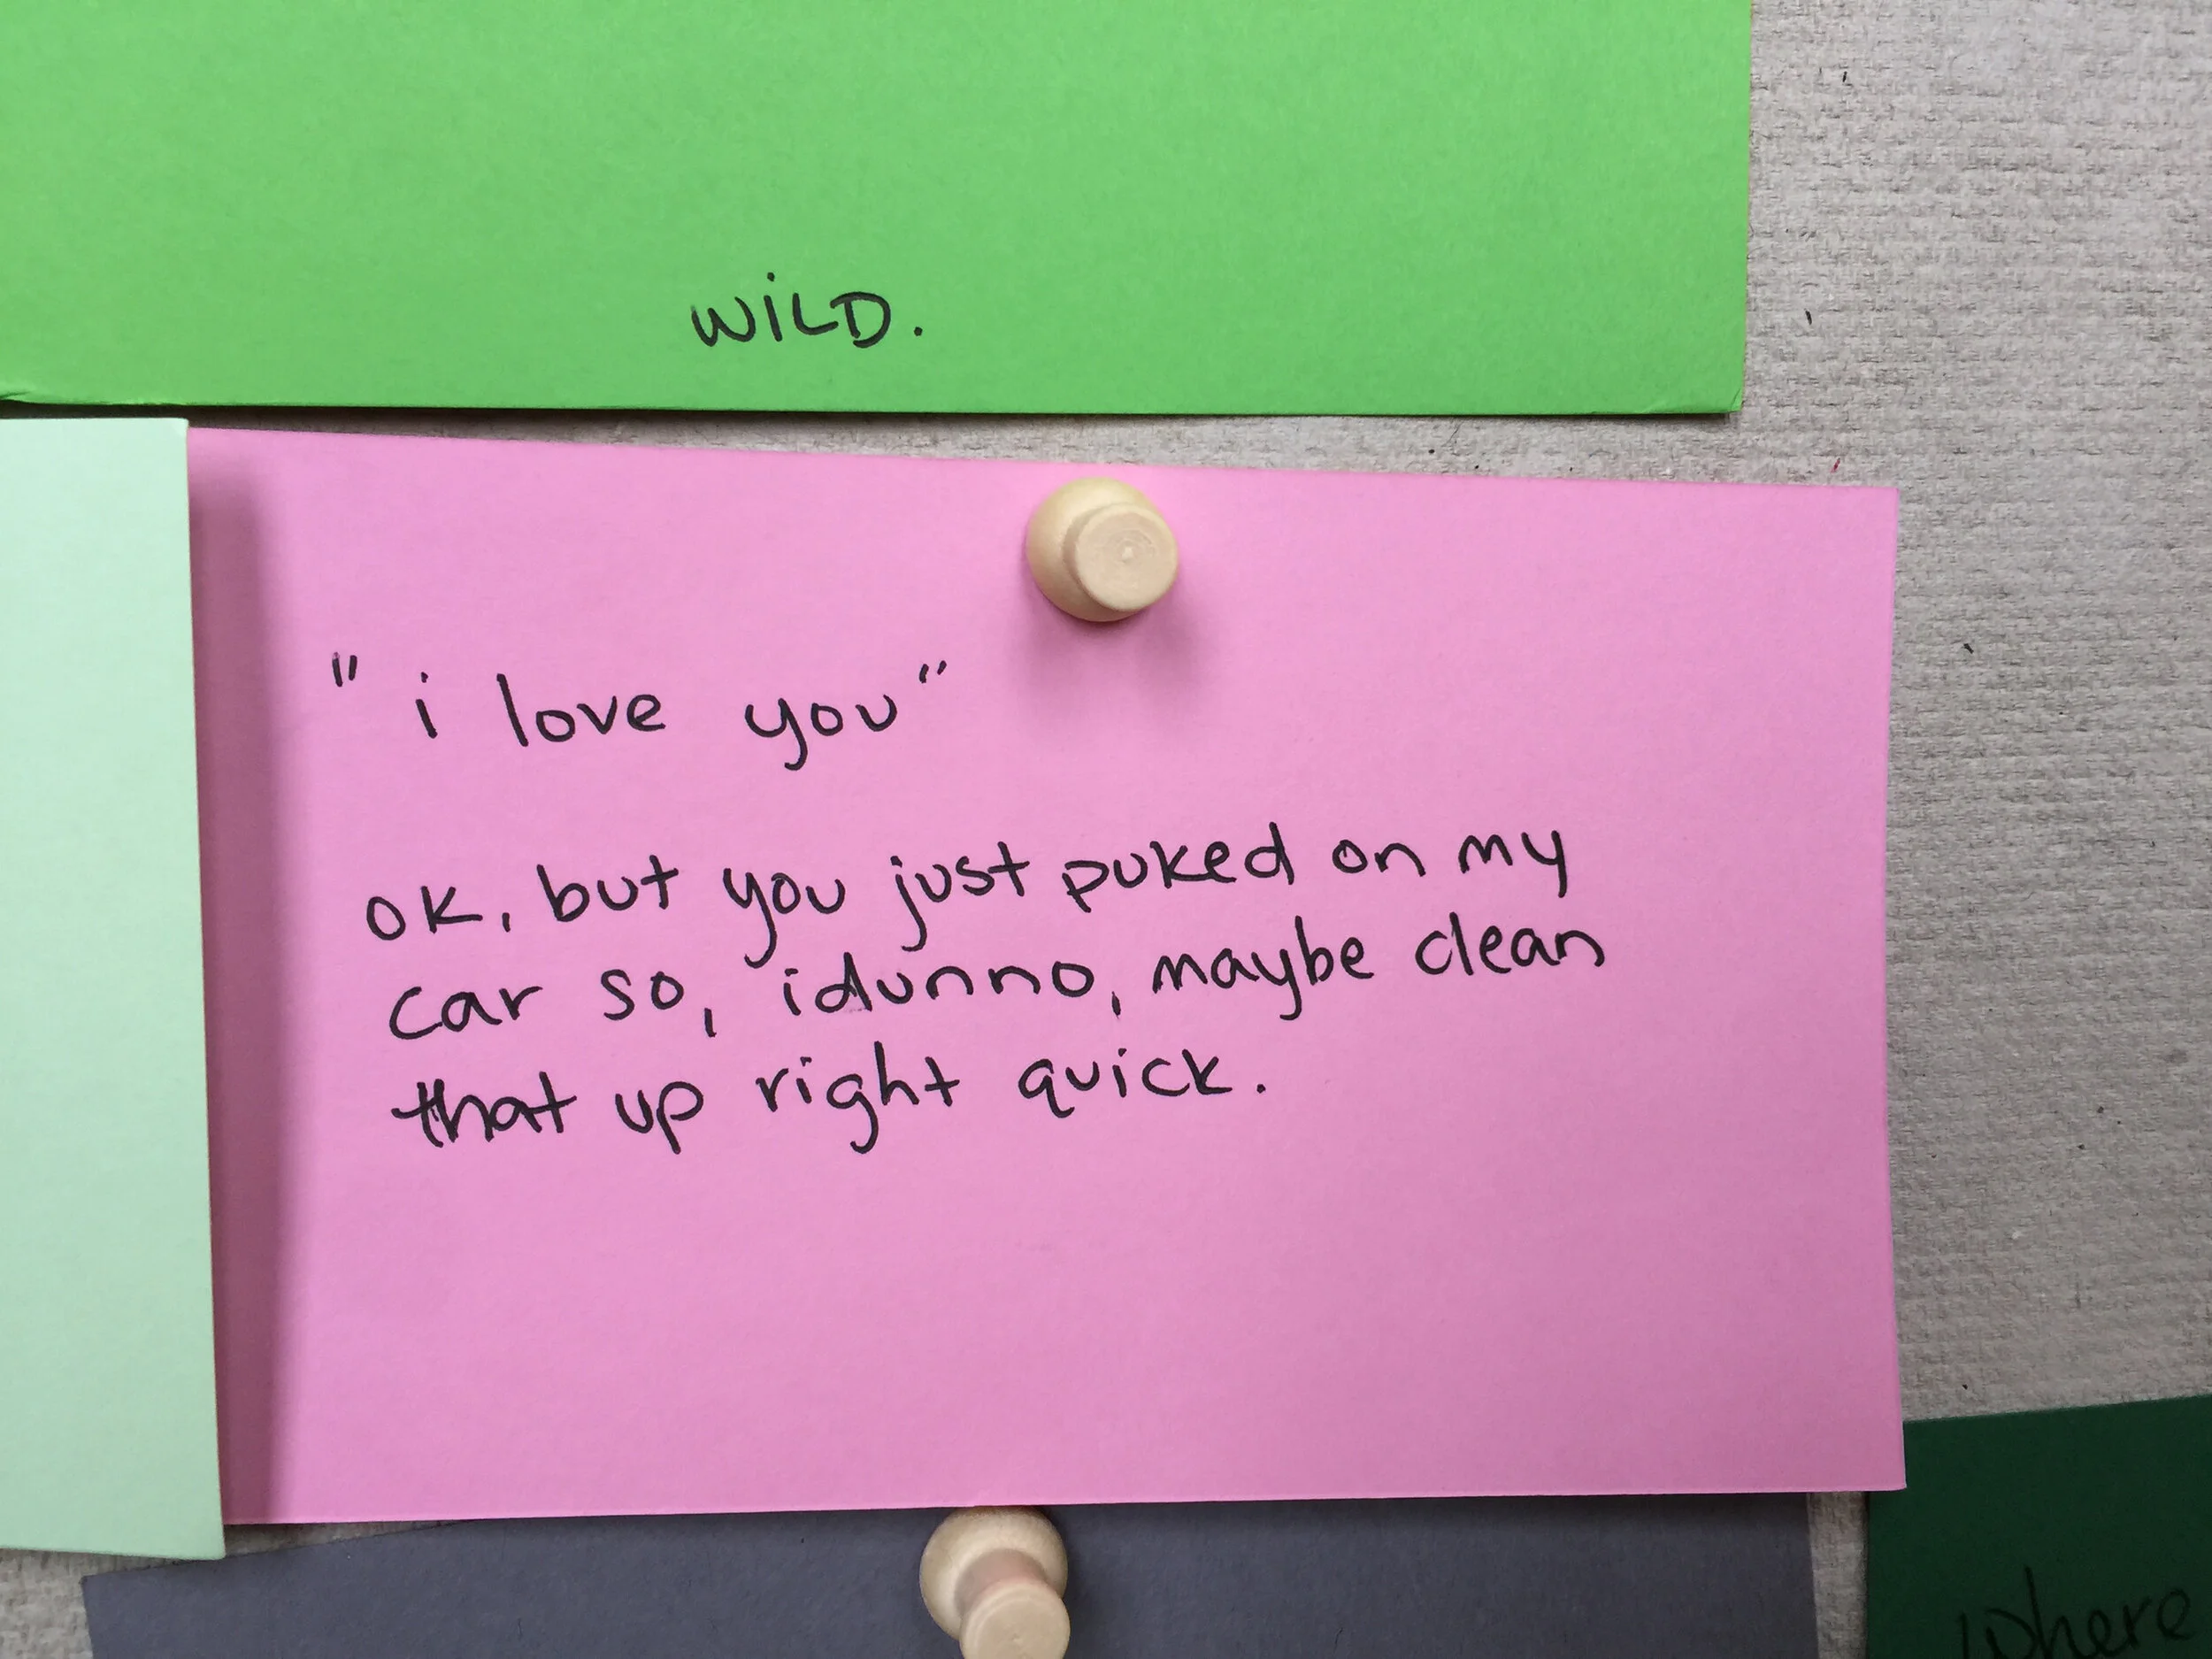 WiLD.
"i love you"
OK, but you just puked on my
car so, idunno, maybe clean
that up right quick.
where